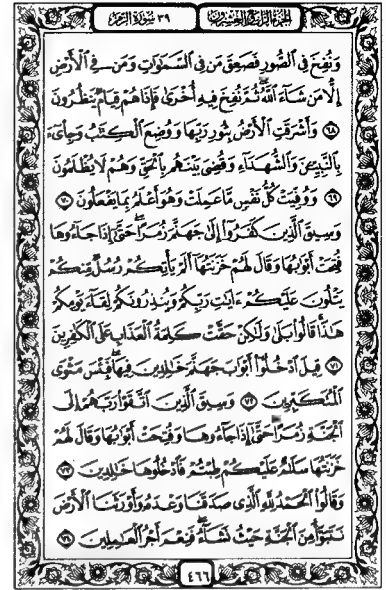 الجزء الرابع والعشرون
٣٩ سورة الزمر
وَنُفِخَ فِي ٱلصُّورِ فَصَعِقَ مَن فِي ٱلسَّمَٰوَٰتِ وَمَن فِي ٱلْأَرْضِ
إِلَّا مَن شَآءَ ٱللَّهُ ثُمَّ نُفِخَ فِيهِ أُخْرَىٰ فَإِذَا هُمْ قِيَامٌ يَنظُرُونَ
٦٨ وَأَشْرَقَتِ ٱلْأَرْضُ بِنُورِ رَبِّهَا وَوُضِعَ ٱلْكِتَٰبُ وَجِاْيٓءَ
بِٱلنَّبِيِّـۧنَ وَٱلشُّهَدَآءِ وَقُضِيَ بَيْنَهُم بِٱلْحَقِّ وَهُمْ لَا يُظْلَمُونَ
٦٩ وَوُفِّيَتْ كُلُّ نَفْسٍ مَّا عَمِلَتْ وَهُوَ أَعْلَمُ بِمَا يَفْعَلُونَ ٧٠
وَسِيقَ ٱلَّذِينَ كَفَرُوٓا۟ إِلَىٰ جَهَنَّمَ زُمَرًا حَتَّىٰٓ إِذَا جَآءُوهَا
فُتِحَتْ أَبْوَٰبُهَا وَقَالَ لَهُمْ خَزَنَتُهَآ أَلَمْ يَأْتِكُمْ رُسُلٌ مِّنكُمْ
يَتْلُونَ عَلَيْكُمْ ءَايَٰتِ رَبِّكُمْ وَيُنذِرُونَكُمْ لِقَآءَ يَوْمِكُمْ
هَٰذَا قَالُوا۟ بَلَىٰ وَلَٰكِنْ حَقَّتْ كَلِمَةُ ٱلْعَذَابِ عَلَى ٱلْكَٰفِرِينَ
٧١ قِيلَ ٱدْخُلُوٓا۟ أَبْوَٰبَ جَهَنَّمَ خَٰلِدِينَ فِيهَا فَبِئْسَ مَثْوَى
ٱلْمُتَكَبِّرِينَ ٧٢ وَسِيقَ ٱلَّذِينَ ٱتَّقَوْا۟ رَبَّهُمْ إِلَى
ٱلْجَنَّةِ زُمَرًا حَتَّىٰٓ إِذَا جَآءُوهَا وَفُتِحَتْ أَبْوَٰبُهَا وَقَالَ لَهُمْ
خَزَنَتُهَا سَلَٰمٌ عَلَيْكُمْ طِبْتُمْ فَٱدْخُلُوهَا خَٰلِدِينَ ٧٣
وَقَالُوا۟ ٱلْحَمْدُ لِلَّهِ ٱلَّذِي صَدَقَنَا وَعْدَهُۥ وَأَوْرَثَنَا ٱلْأَرْضَ
نَتَبَوَّأُ مِنَ ٱلْجَنَّةِ حَيْثُ نَشَآءُ فَنِعْمَ أَجْرُ ٱلْعَٰمِلِينَ ٧٤
٤٦٦